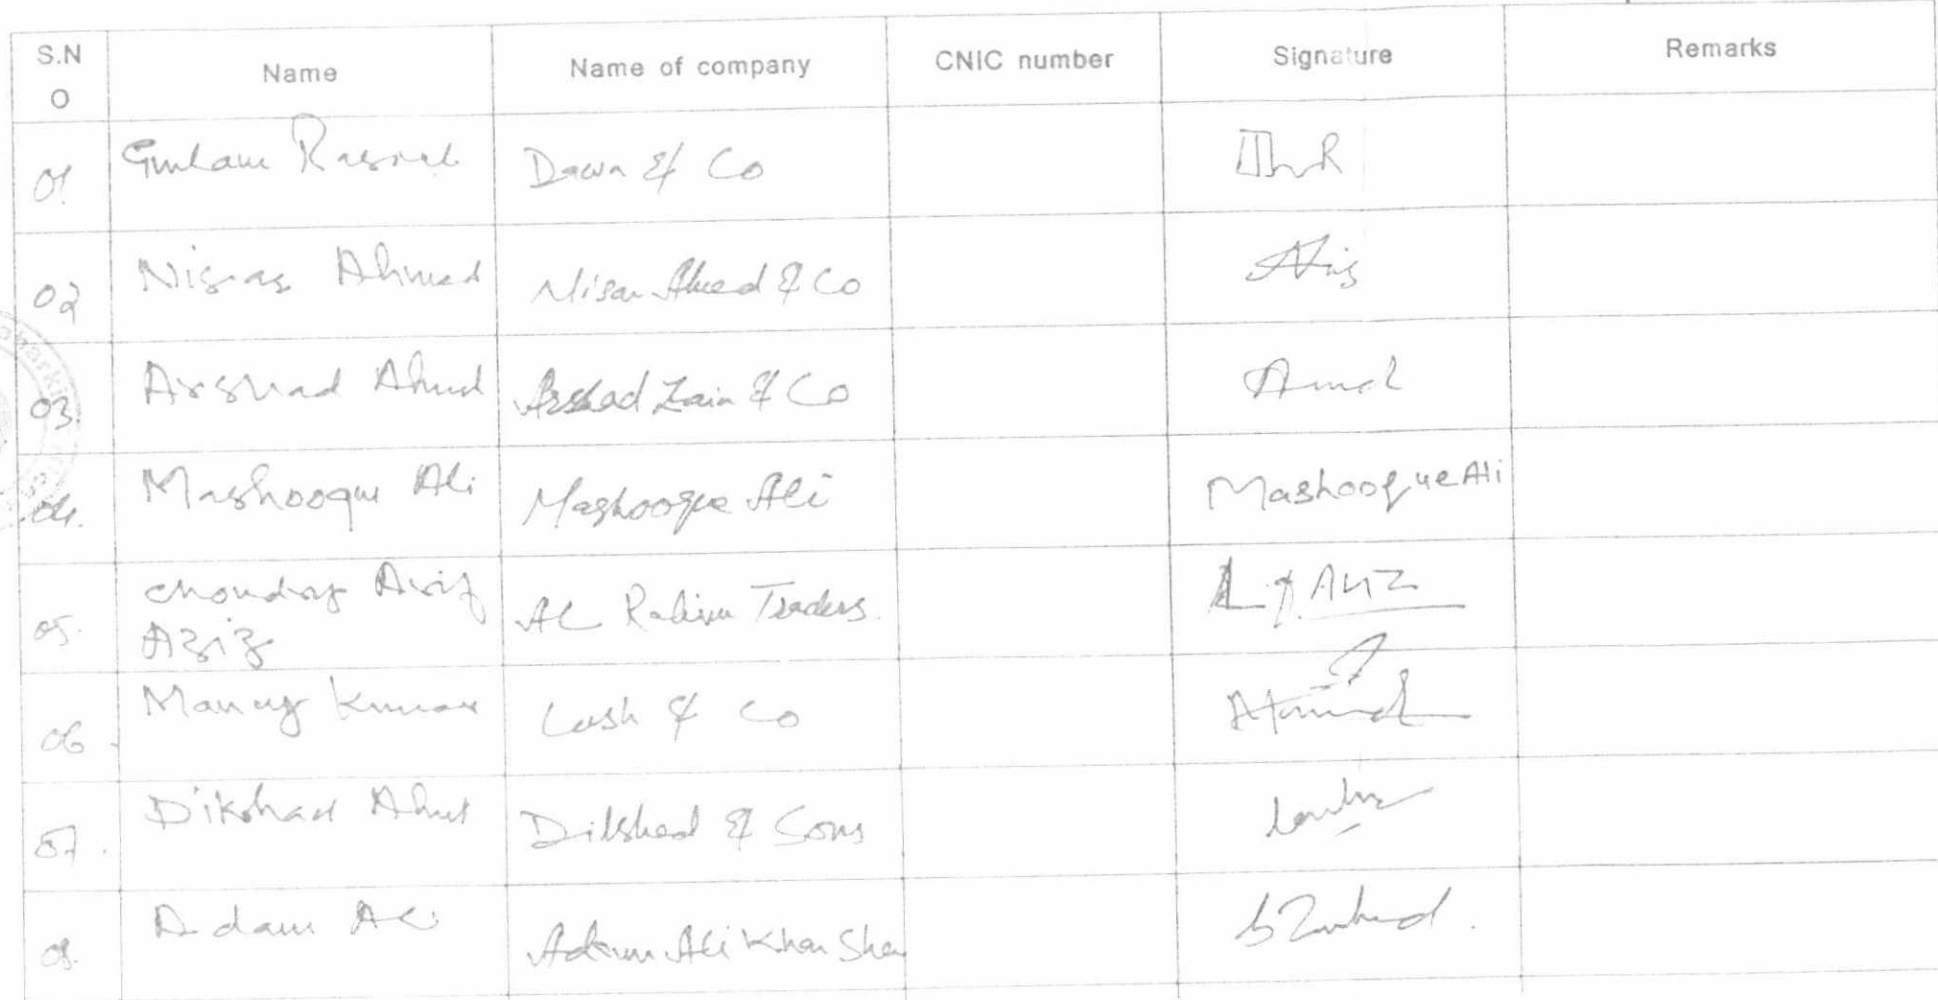 S.N
O
Name
Name of company
CNIC number
Signature
Remarks
01.
Gulam Rasool
Dawn & Co
02
Nisar Ahmed
Nisar Ahmed & Co
03.
Arshad Ahmed
Arshad Zain & Co
04.
Mashooque Ali
Mashooque Ali
Mashooque Ali
05.
Choudry Arif
Aziz
AL Rahim Traders.
06.
Kumar
& Co
07.
Dilshad Ahmed
Dilshad & Sons
08.
Adam Ali
Adam Ali Khan